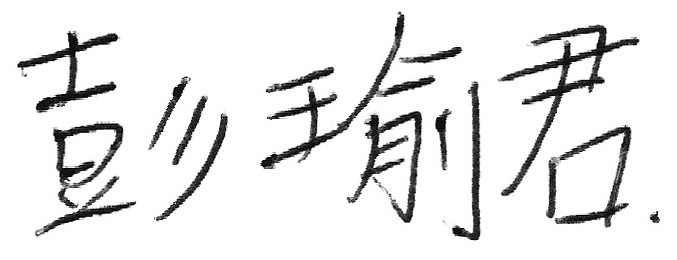 彭瑜君.